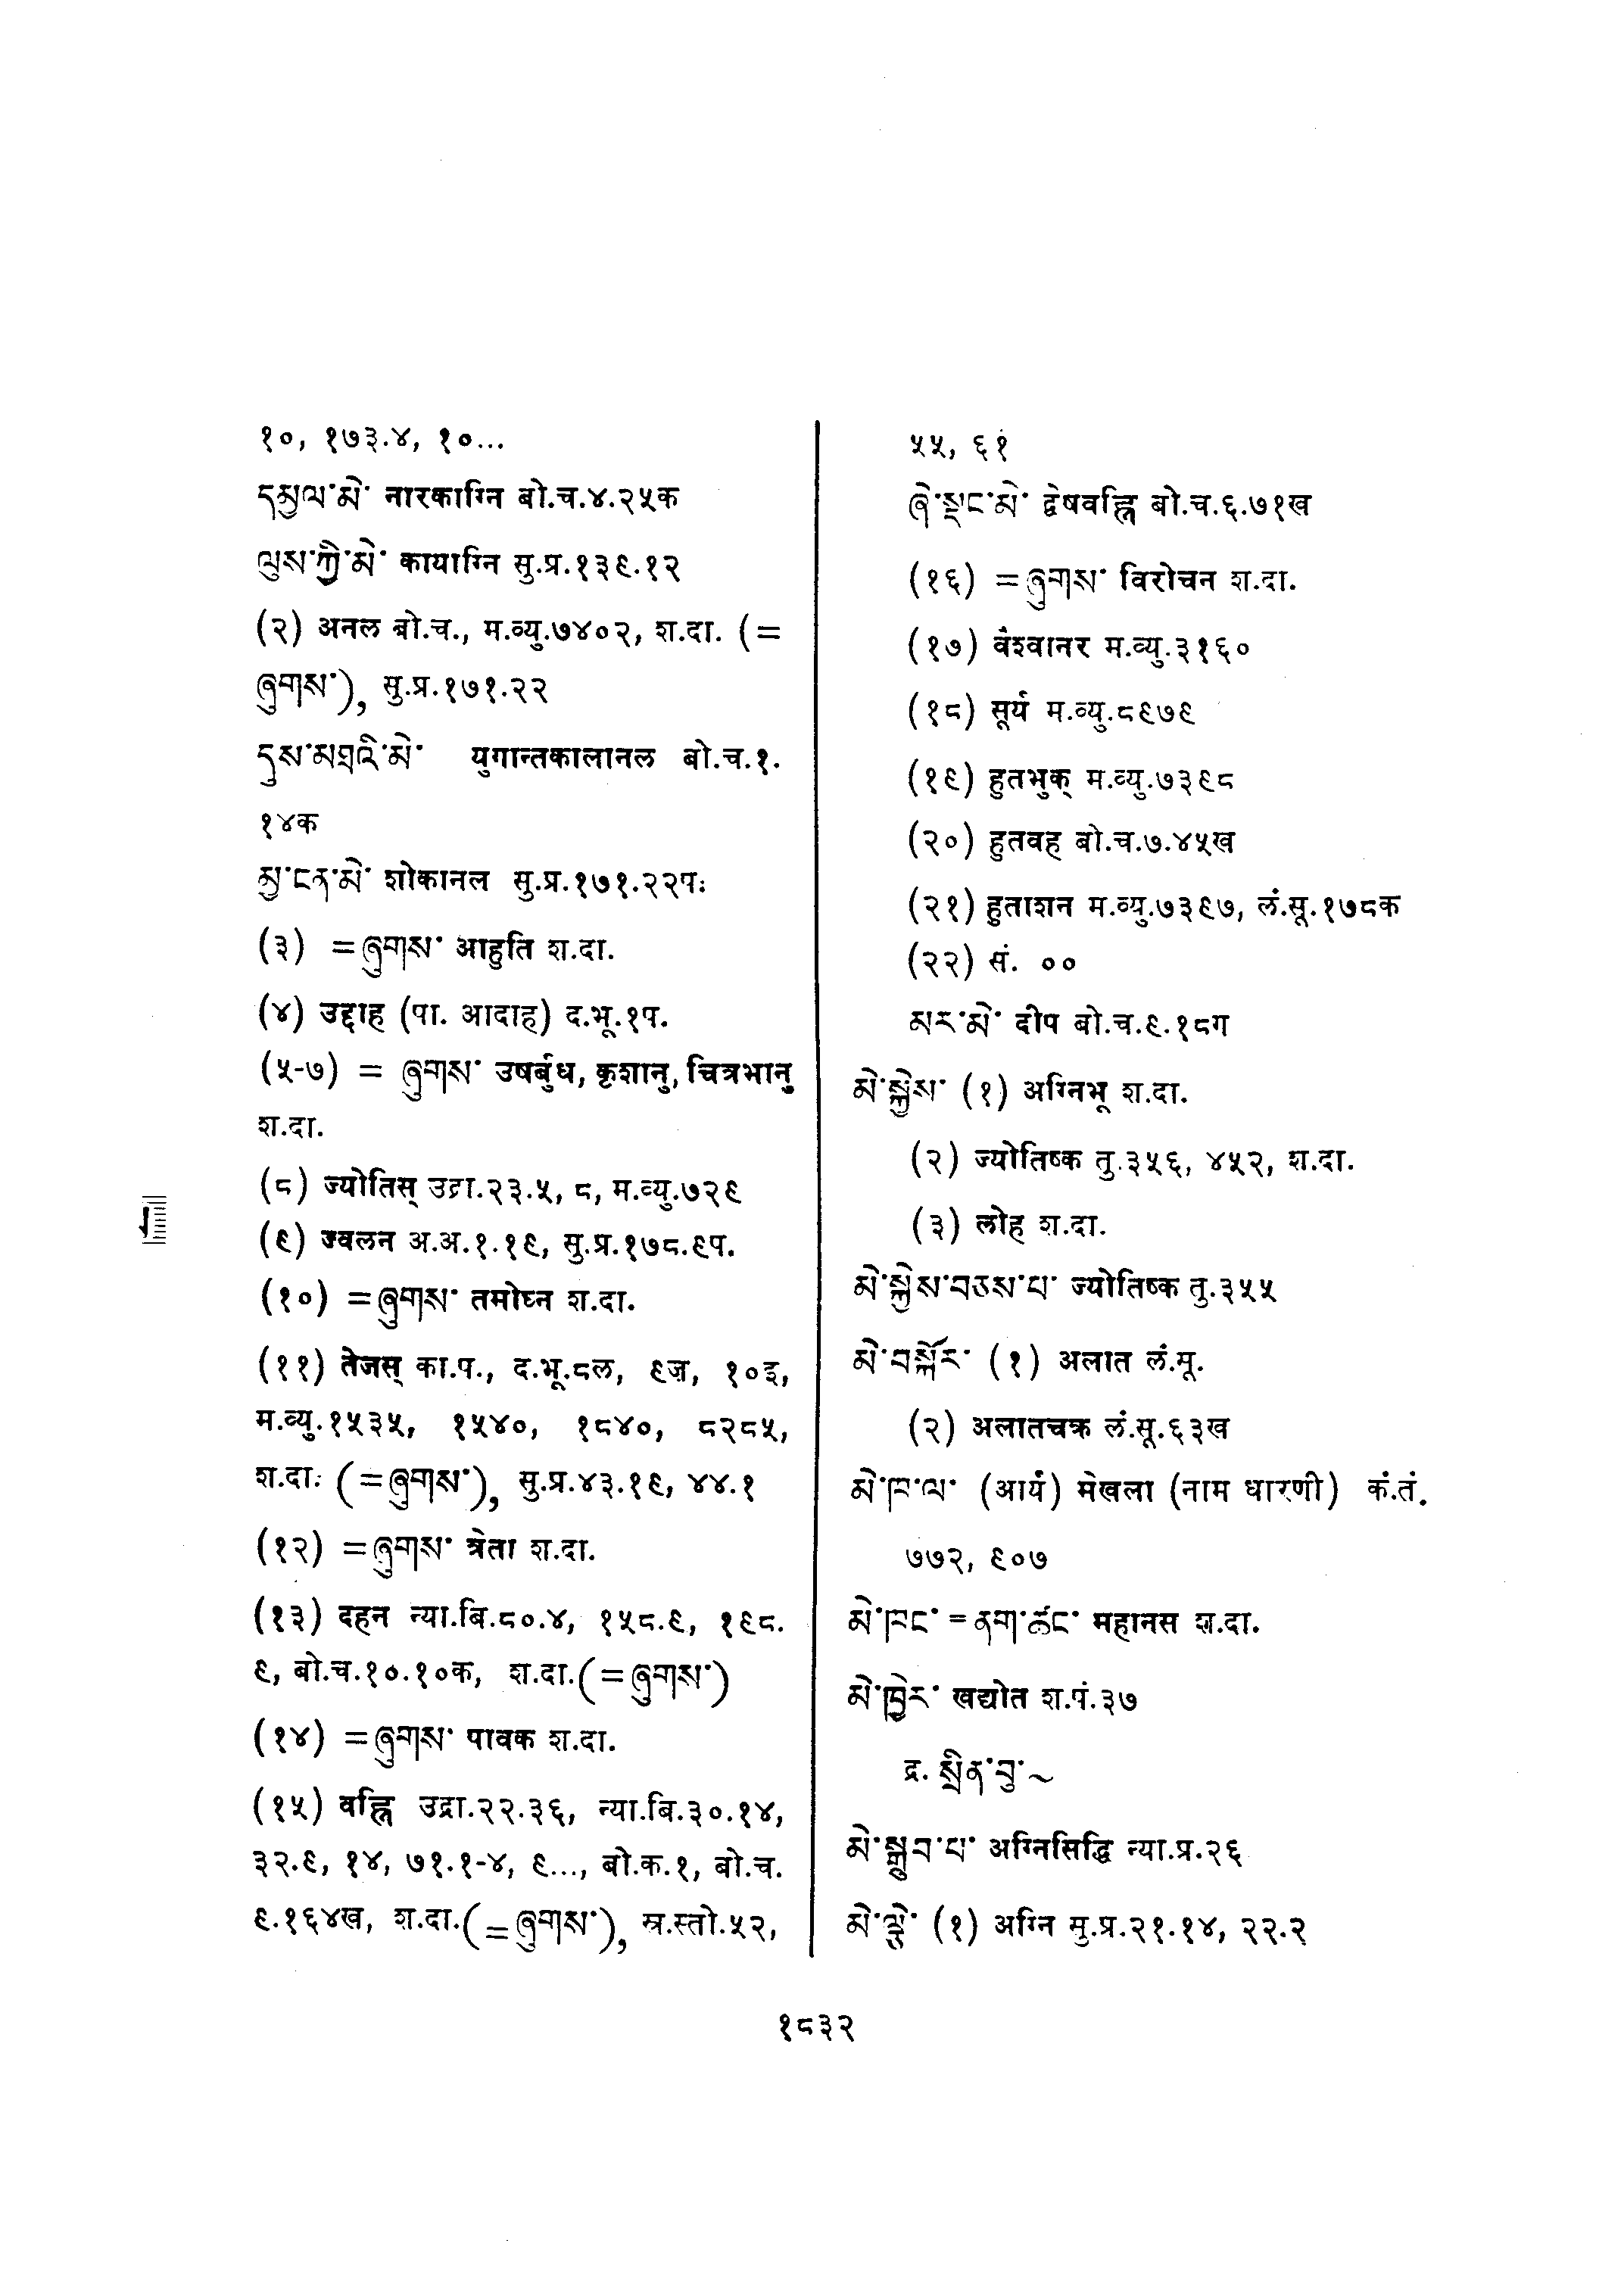 १०, १७३.४, १०...
དམྱལ་མེ་ नारकाग्नि बो.च.४.२५क
ལུས་ཀྱི་མེ་ कायाग्नि सु.प्र.१३९.१२
(२) अनल बो.च., म.व्यु.७४०२, श.दा. (=
ཞུགས་), सु.प्र.१७१.२२
དུས་མཐའི་མེ་ युगान्तकालानल बो.च.१.
१४क
མྱ་ངན་མེ་ शोकानल सु.प्र.१७१.२२प.
(३) =ཞུགས་ आहुति श.दा.
(४) उद्दाह (पा. आदाह) द.भू.१प.
(५-७) = ཞུགས་ उषर्बुध, कृशानु, चित्रभानु
श.दा.
(८) ज्योतिस् उद्रा.२३.५, ८, म.व्यु.७२९
(९) ज्वलन अ.अ.१.१९, सु.प्र.१७८.९प.
(१०) =ཞུགས་ तमोघ्न श.दा.
(११) तेजस् का.प., द.भू.८ल, ९ज़, १०इ,
म.व्यु.१५३५, १५४०, १८४०, ८२८५,
श.दा. (=ཞུགས་), सु.प्र.४३.१९, ४४.१
(१२) =ཞུགས་ त्रेता श.दा.
(१३) दहन न्या.बि.८०.४, १५८.९, १९८.
९, बो.च.१०.१०क, श.दा.(=ཞུགས་)
(१४) =ཞུགས་ पावक श.दा.
(१५) वह्नि उद्रा.२२.३६, न्या.बि.३०.१४,
३२.९, १४, ७१.१-४, ९..., बो.क.१, बो.च.
९.१६४ख, श.दा.(=ཞུགས་), स्र.स्तो.५२,
५५, ६१
ཞེ་སྡང་མེ་ द्वेषवह्नि बो.च.६.७१ख
(१६) =ཞུགས་ विरोचन श.दा.
(१७) वैश्वानर म.व्यु.३१६०
(१८) सूर्य म.व्यु.८९७९
(१९) हुतभुक् म.व्यु.७३९८
(२०) हुतवह बो.च.७.४५ख
(२१) हुताशन म.व्यु.७३९७, लं.सू.१७८क
(२२) सं. ००
མར་མེ་ दीप बो.च.९.१८ग
མེ་སྐྱེས་ (१) अग्निभू श.दा.
(२) ज्योतिष्क तु.३५६, ४५२, श.दा.
(३) लोह श.दा.
མེ་སྐྱེས་བཅས་པ་ ज्योतिष्क तु.३५५
མེ་བསྐོར་ (१) अलात लं.सू.
(२) अलातचक्र लं.सू.६३ख
མེ་ཁ་ལ་ (आर्य) मेखला (नाम धारणी) कं.तं.
७७२, ९०७
མེ་ཁང་ =ནག་ཚང་ महानस श.दा.
མེ་ཁྱེར་ खद्योत श.पं.३७
द्र. སྲིན་བུ་~
མེ་སྒྲུབ་པ་ अग्निसिद्धि न्या.प्र.२६
མེ་ལྕེ་ (१) अग्नि सु.प्र.२१.१४, २२.२
१८३२